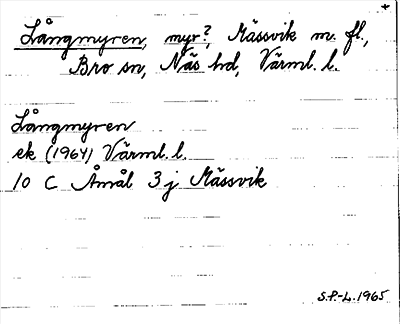 Långmyren, myr?, Mässvik m. fl.,
Bro sn, Näs hd, Värml. l.
Långmyren
ek (1964) Värml. l.
10 C Åmål 3 j Mässvik
S.P.-L. 1965